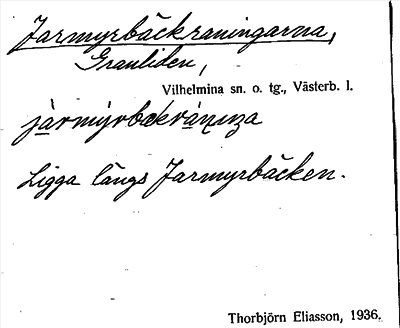 Jarmyrbäckraningarna,
Granliden,
Vilhelmina sn. o. tg., Västerb. l.
Ligga längs Jarmyrbäcken.
Thorbjörn Eliasson, 1936.